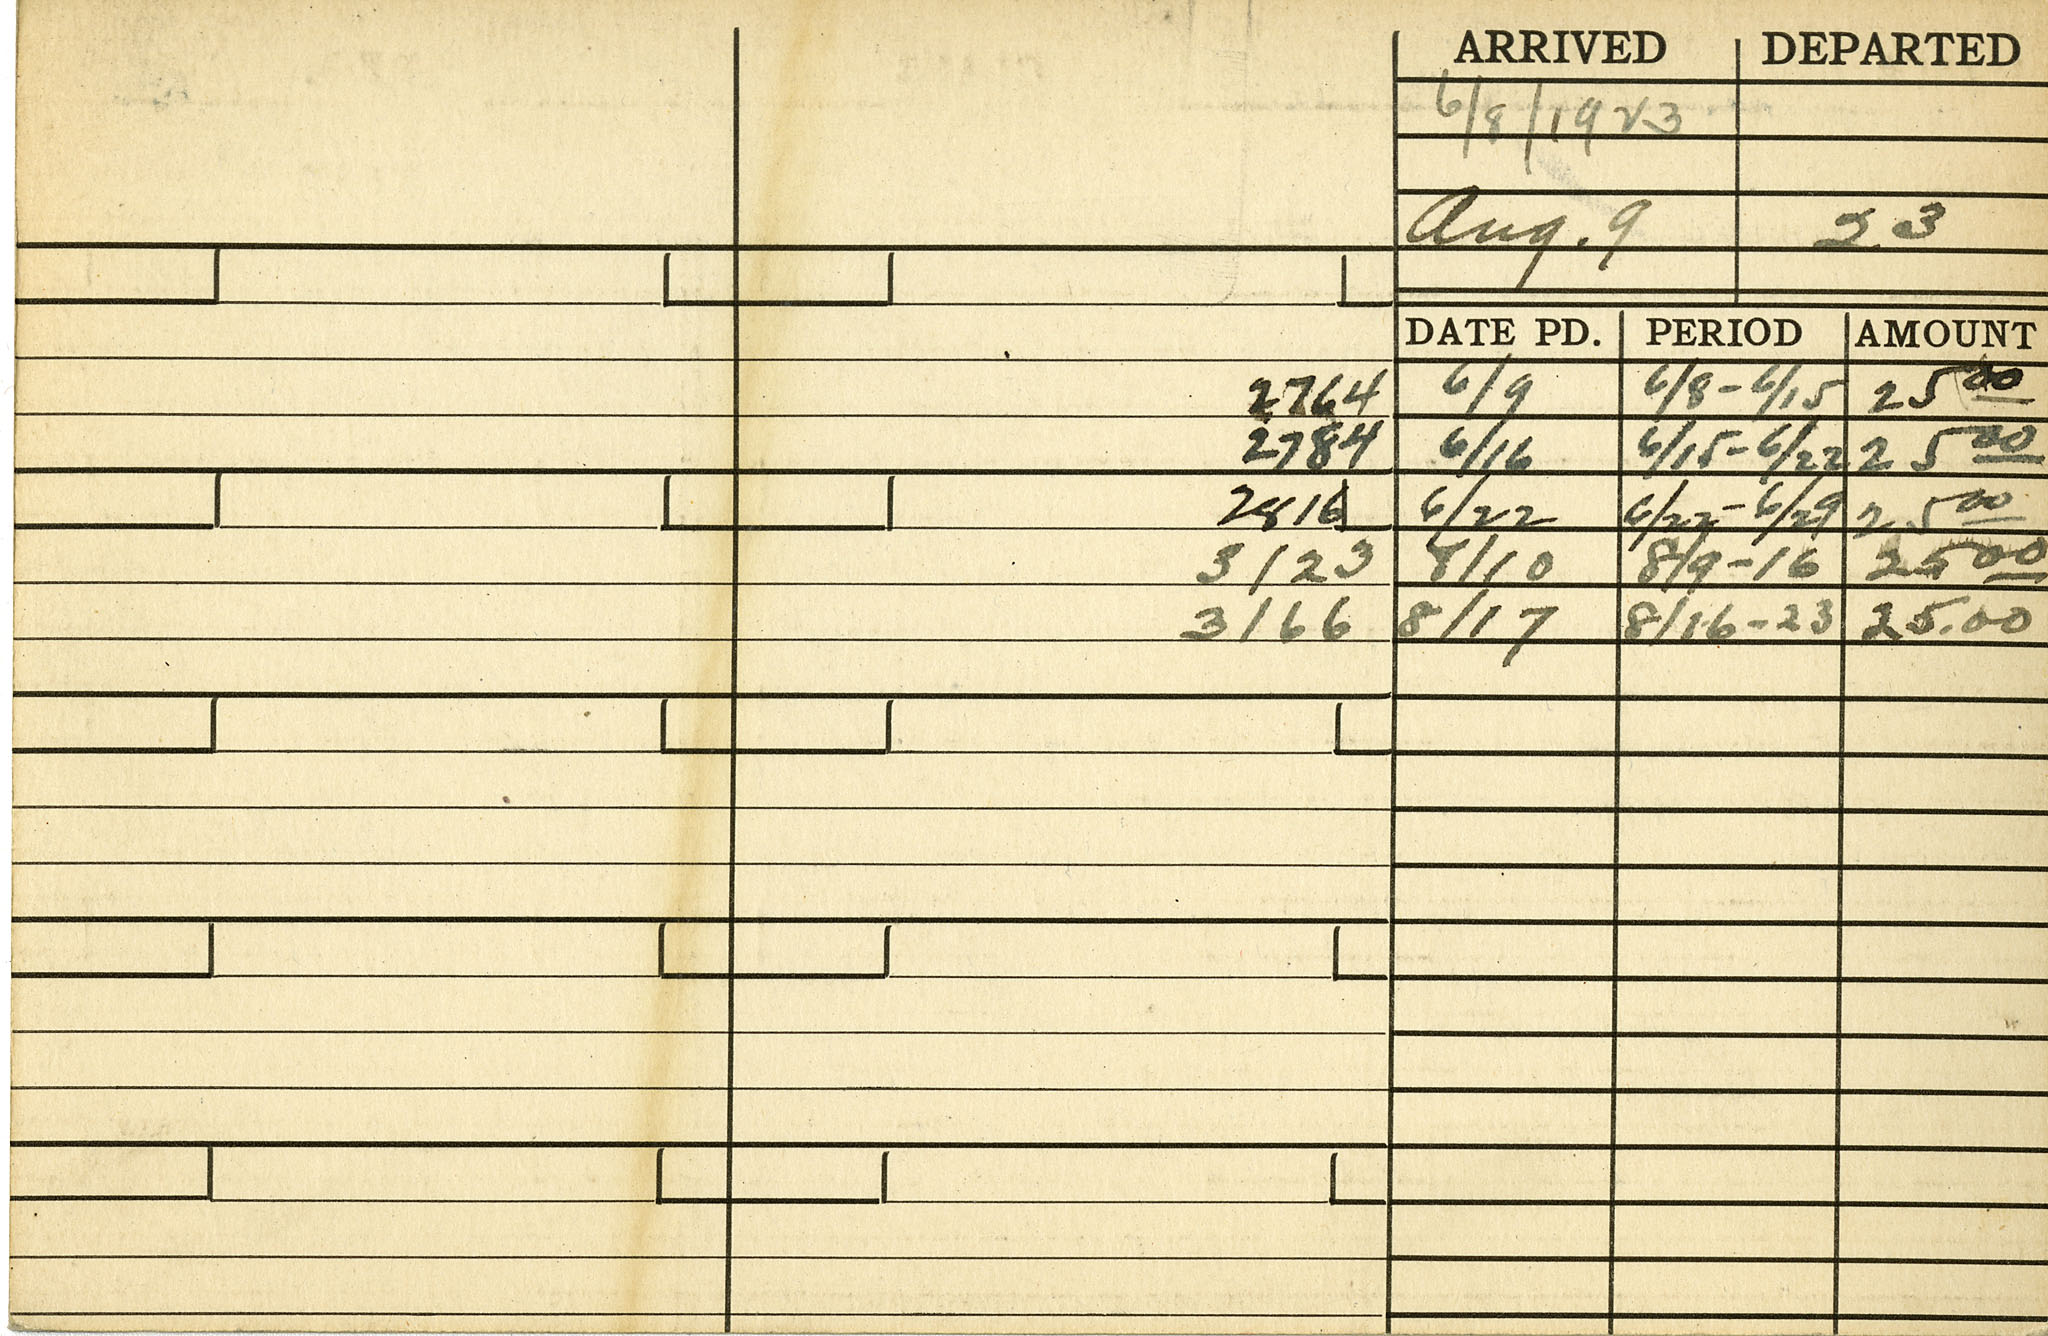 ARRIVED DEPARTED
6/8/1923
Aug. 9 23
DATE PD. PERIOD AMOUNT
2764 6/9 6/8-6/15 25 00
2784 6/16 6/15-6/22 25 00
2816 6/22 6/22-6/29 25 00
3123 8/10 8/9-16 25 00
3166 8/17 8/16-23 25.00